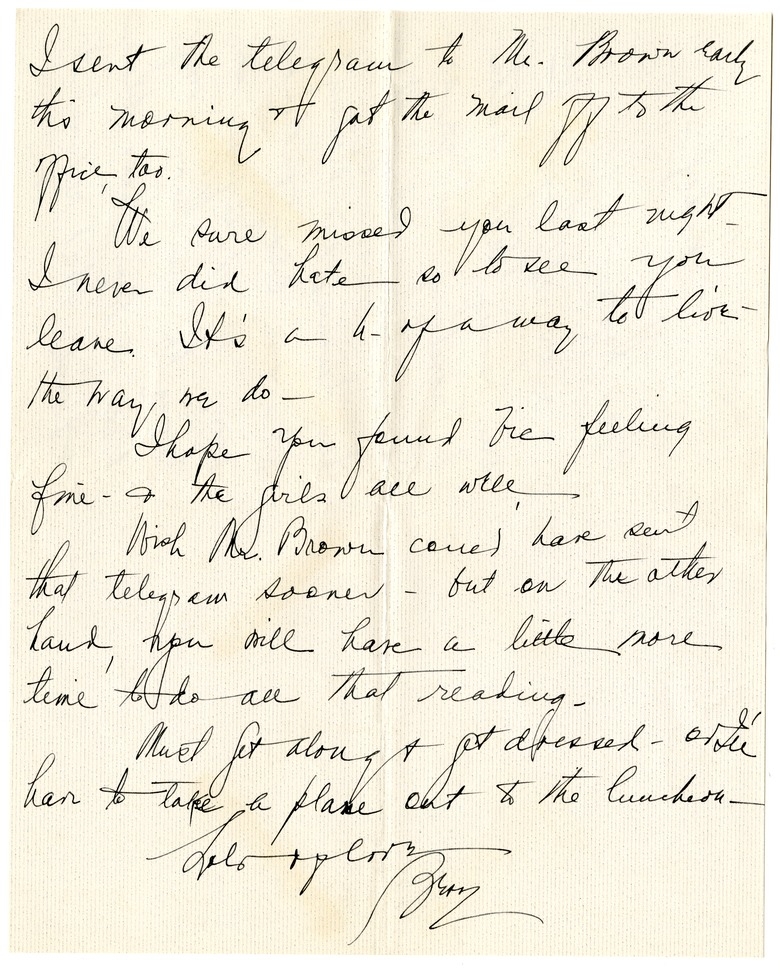 I sent the telegram to Mr. Brown early
this morning & got the mail off to the
office, too.
We sure missed you last night -
I never did hate so to see you
leave. It's a h- of a way to live -
the way, we do -
I hope you found Vic feeling
fine - & the girls all well.
Wish Mr. Brown could have sent
that telegram sooner - but on the other
hand, you will have a little more
time to do all that reading -
Must get along & get dressed - or I'll
have to take a plane out to the luncheon -
Lots of love
Bess